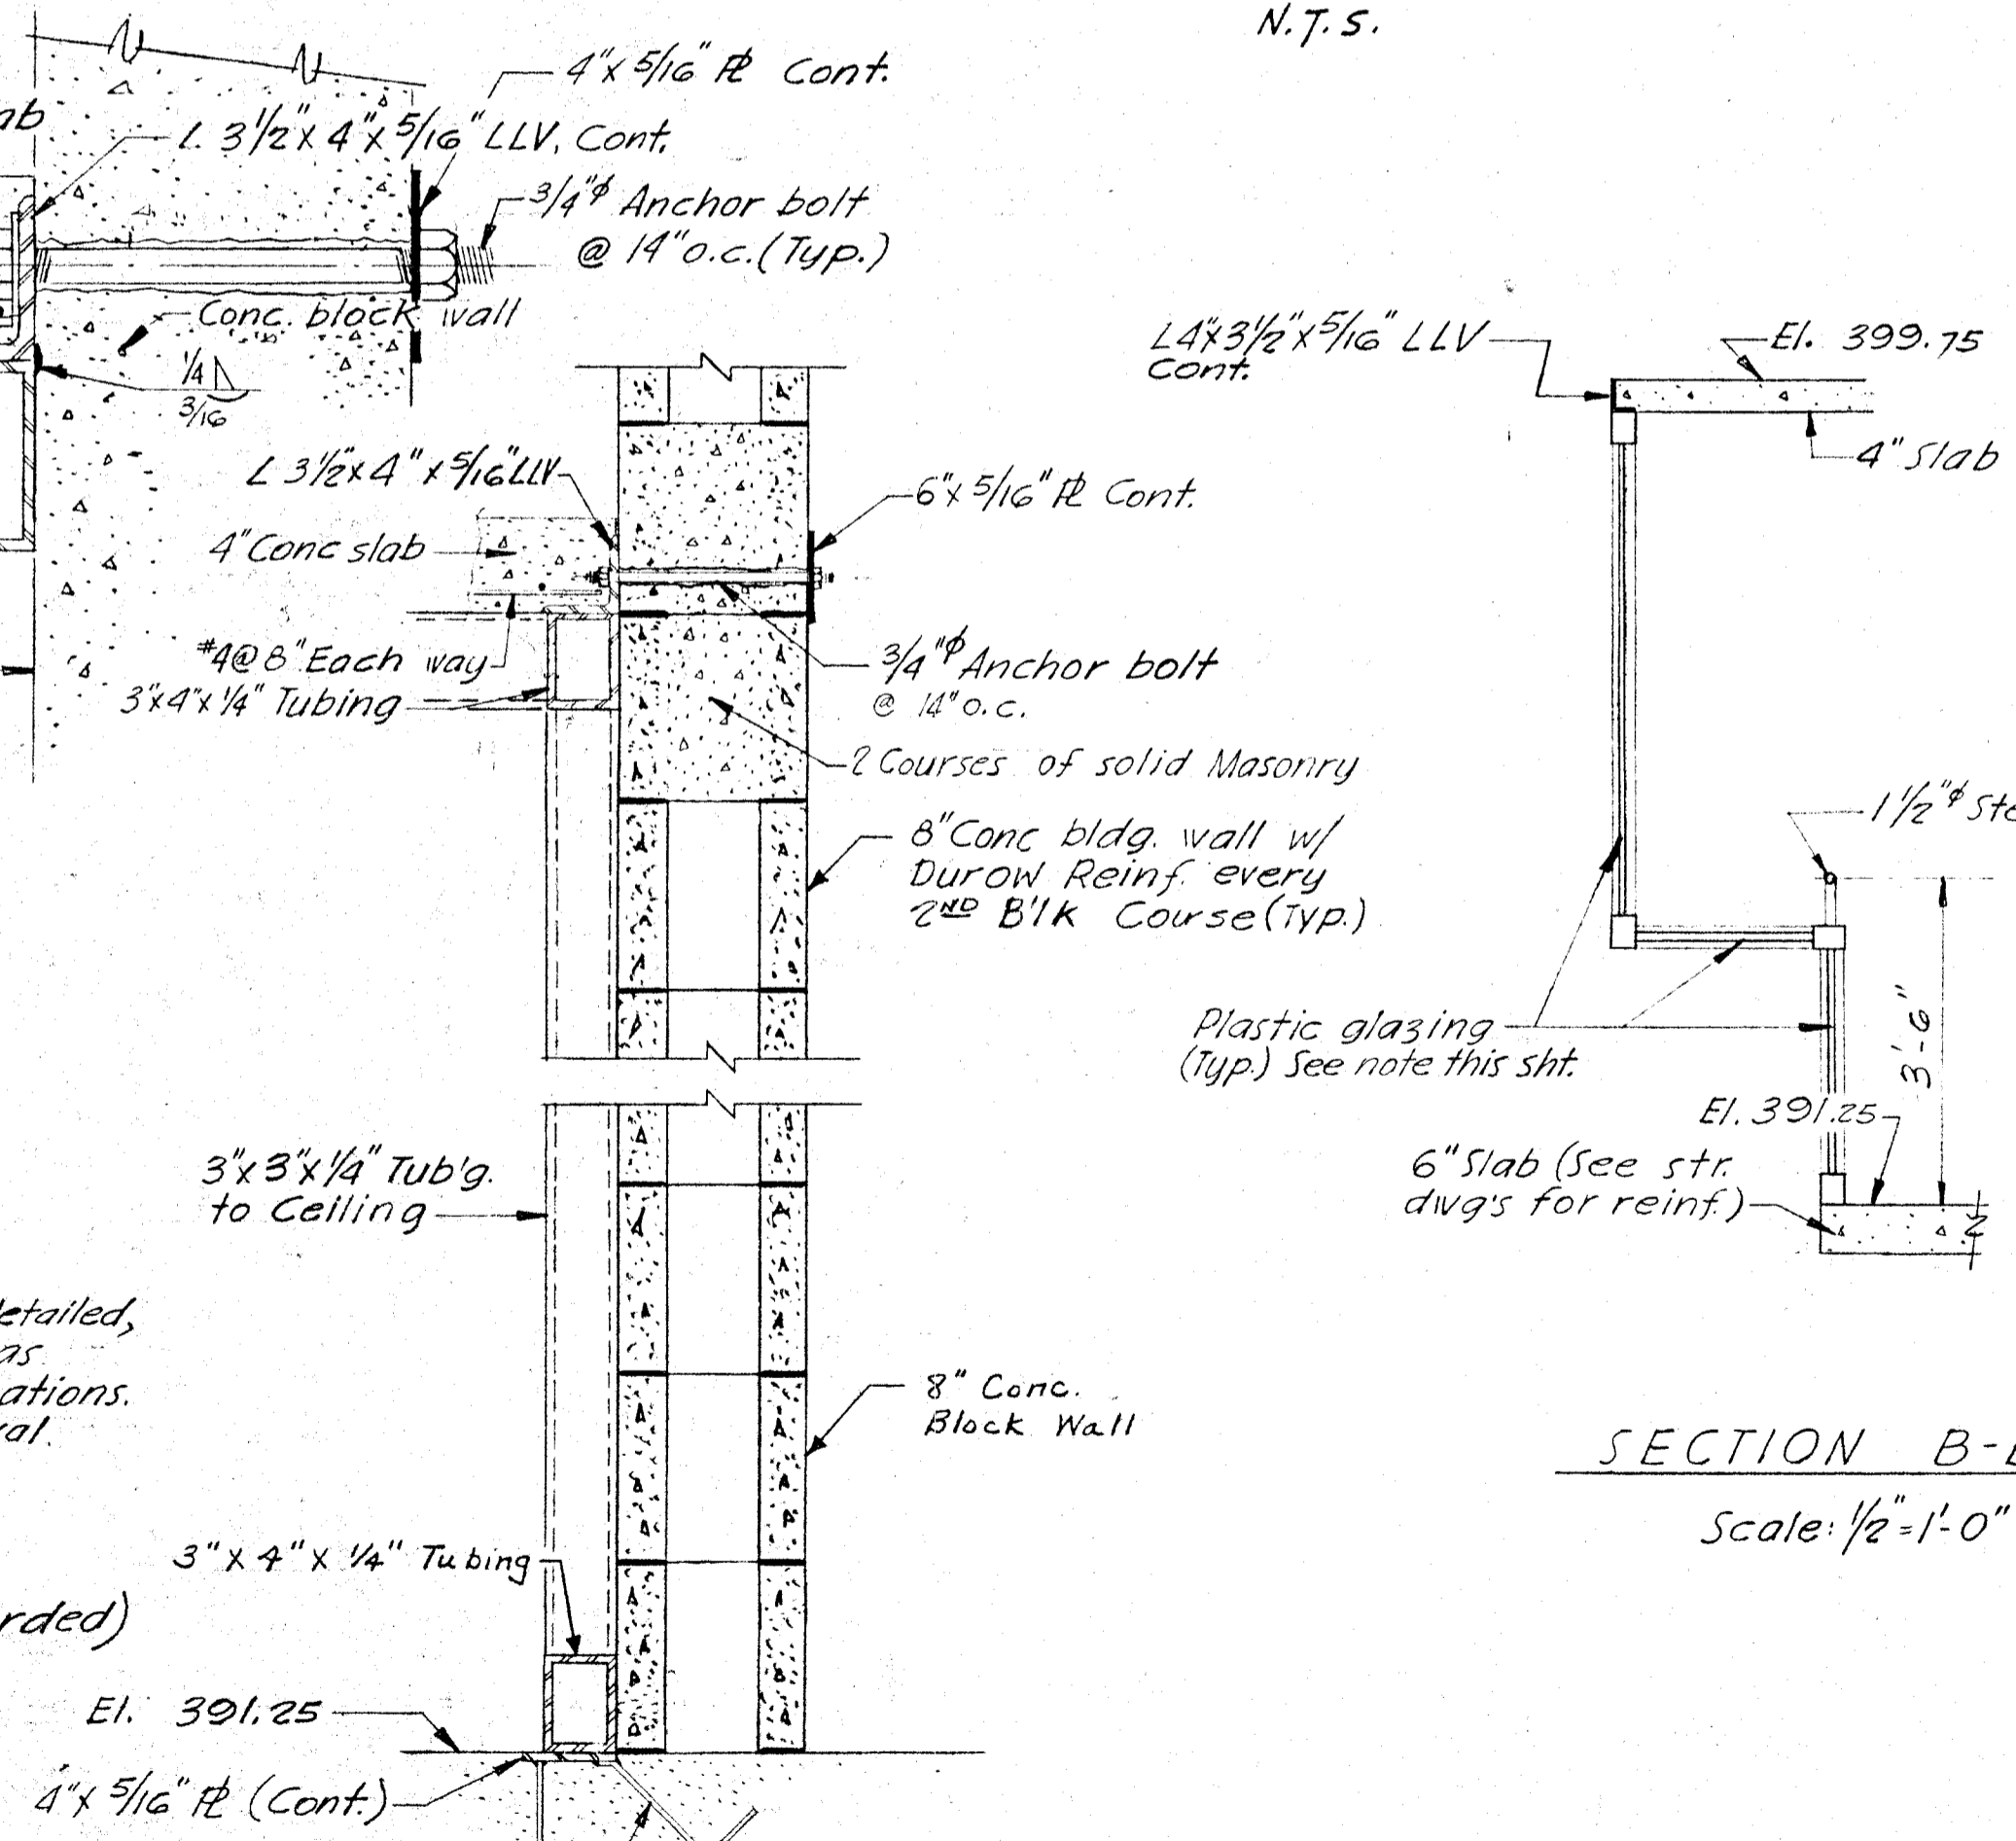 N.T.S.
4"x 5/16" PL Cont.
L 3 1/2"x 4"x 5/16" LLV, Cont.
3/4"ϕ Anchor bolt
@ 14"o.c.(Typ.)
Conc. block wall
1/4
3/16
L 3 1/2"x 4"x 5/16"LLV
4"Conc slab
#4@8"Each way
3"x4"x 1/4" Tubing
6"x 5/16" PL Cont.
3/4"ϕ Anchor bolt
@ 14"o.c.
2 Courses of solid Masonry
8"Conc bldg. wall w/
Durow Reinf. every
2ND B'lk Course(Typ.)
3"x 3"x 1/4" Tub'g.
to Ceiling
8" Conc.
Block Wall
3" x 4" x 1/4" Tubing
El. 391.25
4"x 5/16" PL (Cont.)
detailed,
as
ations.
val.
rded)
L4"x3 1/2"x 5/16" LLV
Cont.
El. 399.75
4" Slab
1 1/2"ϕ Ste
Plastic glazing
(Typ.) See note this sht.
3'-6"
El. 391.25
6"Slab (See str.
dwg's for reinf.)
SECTION B-
Scale: 1/2"=1'-0"